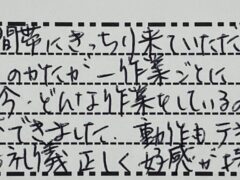 間帯にきっちり来ていただ
のかたが一作業ごとに
今、どんな作業をしているの
できました。動作もテ
礼儀正しく好感が